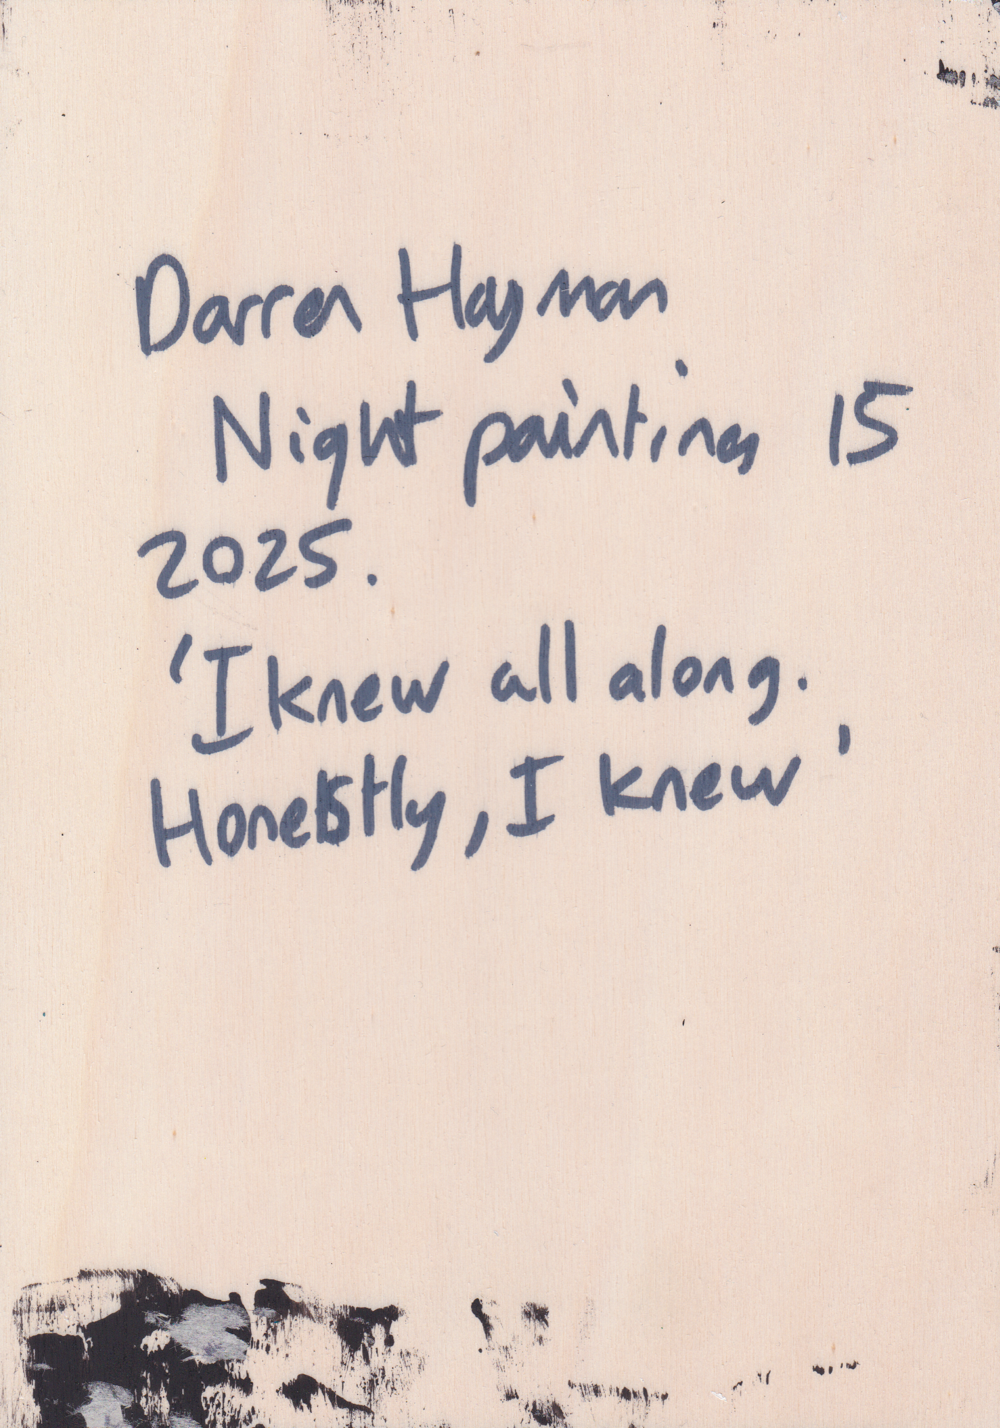 Darren Hayman
Night painting 15
2025.
'I knew all along.
Honestly, I knew'